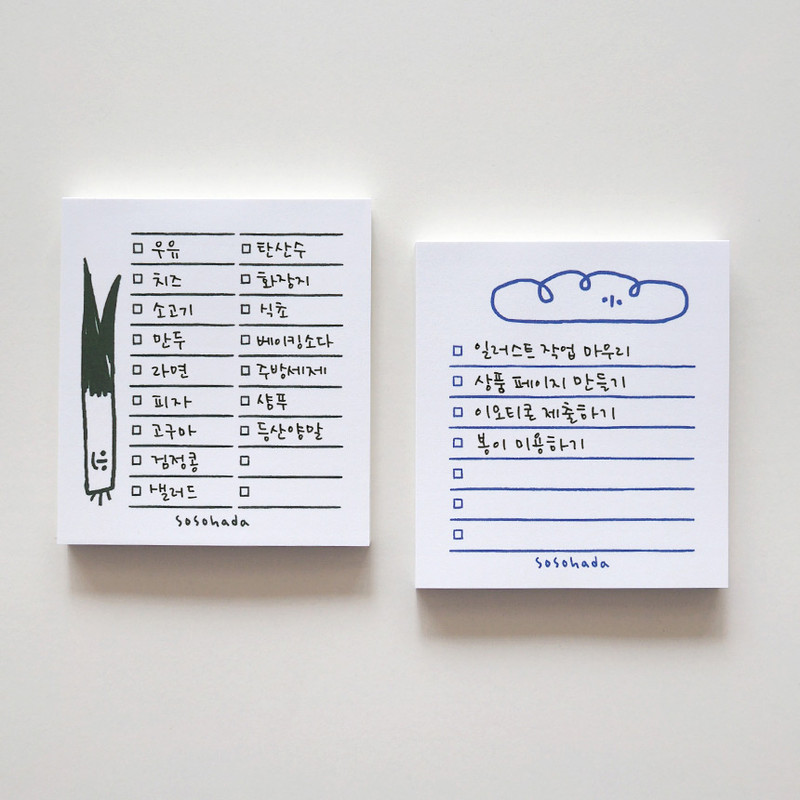 우유
치즈
소고기
만두
라면
피자
고구마
검정콩
샐러드
탄산수
화장지
식초
베이킹소다
주방세제
샴푸
등산양말
sosohada
일러스트 작업 마무리
상품 페이지 만들기
이모티콘 제출하기
봉이 미용하기
sosohada